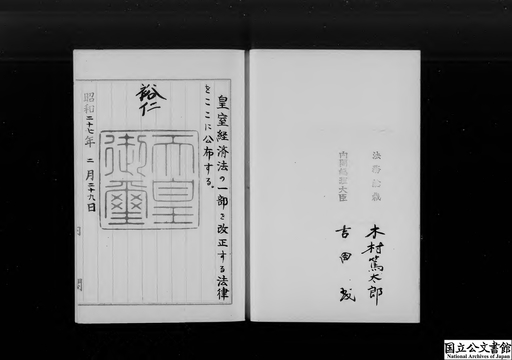 皇室経済法の一部を改正する法律
をここに公布する。
裕仁
天皇
御璽
昭和二十七年 二月二十九日
内閣総理大臣
吉田 茂
法務総裁
木村篤太郎
国立公文書館
National Archives of Japan